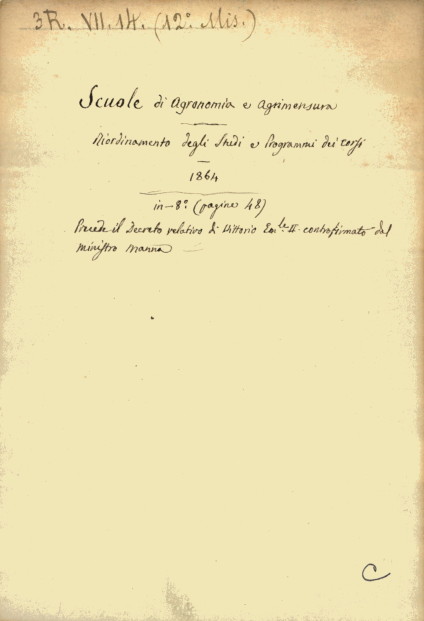 3R. VII. 14. (12° Mis.)
Scuole di Agronomia e Agrimensura
Riordinamento degli Studi e Programmi dei corsi
1864
in-8° (pagine 48)
Precede il Decreto relativo di Vittorio Em.le II. controfirmato dal
ministro Manna
C